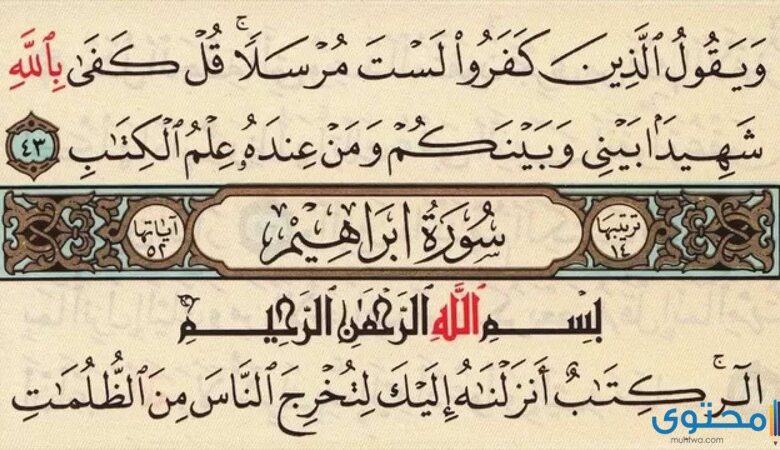 وَيَقُولُ ٱلَّذِينَ كَفَرُوا۟ لَسْتَ مُرْسَلًا ۚ قُلْ كَفَىٰ بِٱللَّهِ
شَهِيدًۢا بَيْنِى وَبَيْنَكُمْ وَمَنْ عِندَهُۥ عِلْمُ ٱلْكِتَٰبِ ٤٣
ترتيبها ١٤ سُورَةُ ابْرَاهِيمْ آياتها ٥٢
بِسْمِ ٱللَّهِ ٱلرَّحْمَٰنِ ٱلرَّحِيمِ
الٓر ۚ كِتَٰبٌ أَنزَلْنَٰهُ إِلَيْكَ لِتُخْرِجَ ٱلنَّاسَ مِنَ ٱلظُّلُمَٰتِ
محتوى
muhtwa.com